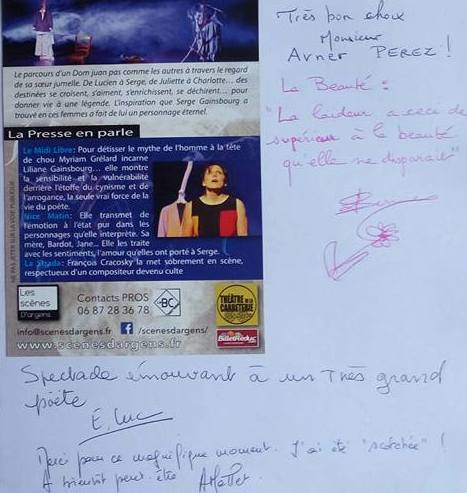 Le parcours d'un Dom juan pas comme les autres à travers le regard
de sa sœur jumelle. De Lucien à Serge, de Juliette à Charlotte... des
destinées se croisent, s'aiment, s'enrichissent, se déchirent... pour
donner vie à une légende. L'inspiration que Serge Gainsbourg a
trouvé en ces femmes a fait de lui un personnage éternel.
La Presse en parle
Le Midi Libre: Pour détisser le mythe de l'homme à la tête
de chou Myriam Grélard incarne
Liliane Gainsbourg... elle montre
la sensibilité et la vulnérabilité
derrière l'étoffe du cynisme et de
l'arrogance, la seule vrai force de la
vie du poète.
Nice Matin: Elle transmet de
l'émotion à l'état pur dans les
personnages qu'elle interprète. Sa
mère, Bardot, Jane... Elle les traite
avec les sentiments, l'amour qu'elles ont porté à Serge.
La Strada: François Cracosky la met sobrement en scène,
respectueux d'un compositeur devenu culte
NE PAS JETER SUR LA VOIE PUBLIQUE
Les
scènes
D'argens
Contacts PROS
06 87 28 36 78
BC
THÉÂTRE DE LA
CARRETERIE
info@scenesdargens.fr /scenesdargens/
BilletReduc
www.scenesdargens.fr
Très bon choix
Monsieur
Avner PEREZ !
La Beauté :
"La laideur a ceci de
supérieur à la beauté
qu'elle ne disparait"
Spectacle émouvant à un très grand
poète
E. Luc
Merci pour ce magnifique moment. J'ai été "scotchée" !
A bientôt peut être